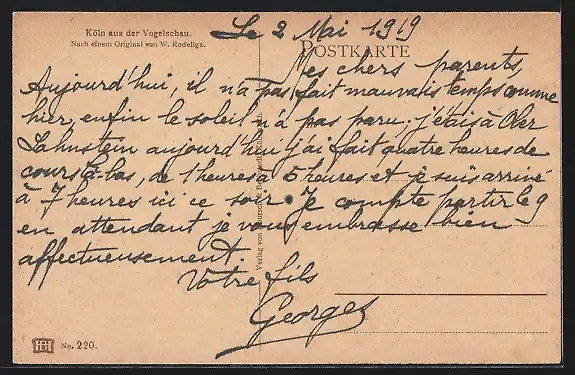 Köln aus der Vogelschau.
Nach einem Original von W. Redeligx.
Le 2 Mai 1919
POSTKARTE
Mes chers parents,
Aujourd'hui, il n'a pas fait mauvais temps comme
hier, enfin le soleil n'a pas paru; j'étais à Ober
Lahnstein aujourd'hui j'ai fait quatre heures de
cours là-bas, de 1 heures à 5 heures et je suis arrivé
à 7 heures ici ce soir. Je compte partir le 9
en attendant je vous embrasse bien
affectueusement.
Votre fils
Georges
Verlag von
HB No. 220.